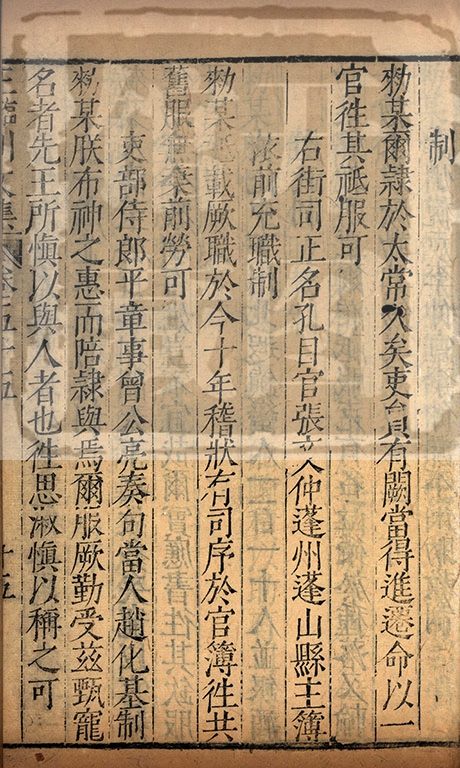 制
勑某爾隸於太常久矣吏員有闕當得進遷命以一
官徃其祗服可
右街司正名孔目官張文仲蓬州蓬山縣主簿
依前充職制
勑某載厥職於今十年稽狀有司序於官簿徃共
舊服無棄前勞可
吏部侍郎平章事曾公亮奏句當人趙化基制
勑某朕布神之惠而陪隸與焉爾服厥勤受兹甄寵
名者先王所愼以與人者也徃思淑愼以稱之可
王臨川文集 卷五十五 十五